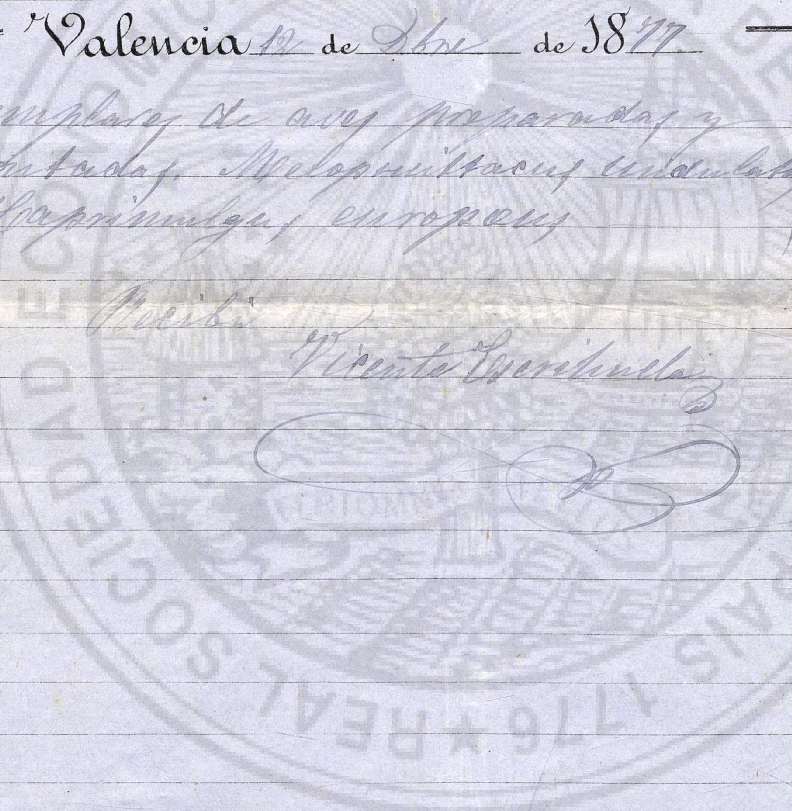 Valencia 12 de Dbre de 1877.
mplares de aves preparadas y
ntadas. Melopsittacus undulatus
Caprimulgus europæus
Recibí
Vicente Escrihuela
REAL SOCIEDAD ECONOM
DE
PAIS 1776 ★